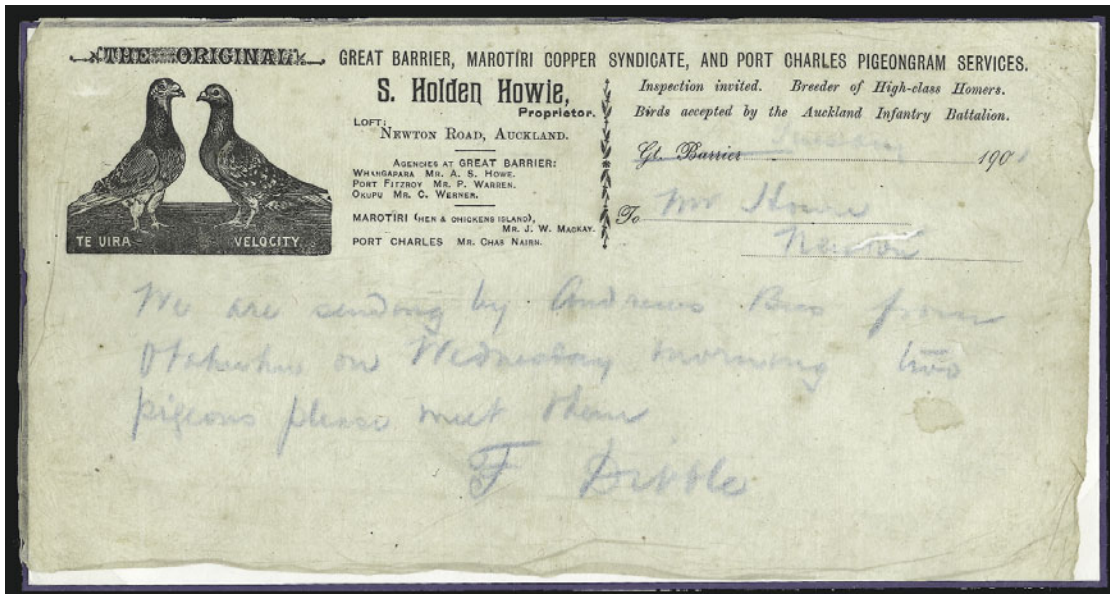 THE ORIGINAL
GREAT BARRIER, MAROTIRI COPPER SYNDICATE, AND PORT CHARLES PIGEONGRAM SERVICES.
S. Holden Howie,
Proprietor.
LOFT:
NEWTON ROAD, AUCKLAND.
AGENCIES AT GREAT BARRIER:
WHANGAPARA MR. A. S. HOWE.
PORT FITZROY MR. P. WARREN.
OKUPU MR. C. WERNER.
MAROTIRI (HEN & CHICKENS ISLAND),
MR. J. W. MACKAY.
PORT CHARLES MR. CHAS NAIRN.
TE UIRA VELOCITY
Inspection invited. Breeder of High-class Homers.
Birds accepted by the Auckland Infantry Battalion.
Gt. Barrier 190
To Mr Howie
Newton
We are sending by Andrews Bus from
Otahuhu on Wednesday morning two
pigeons please meet them
F Dibble